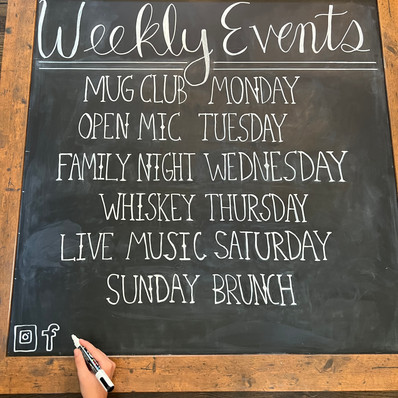 Weekly Events
MUG CLUB MONDAY
OPEN MIC TUESDAY
FAMILY NIGHT WEDNESDAY
WHISKEY THURSDAY
LIVE MUSIC SATURDAY
SUNDAY BRUNCH
f